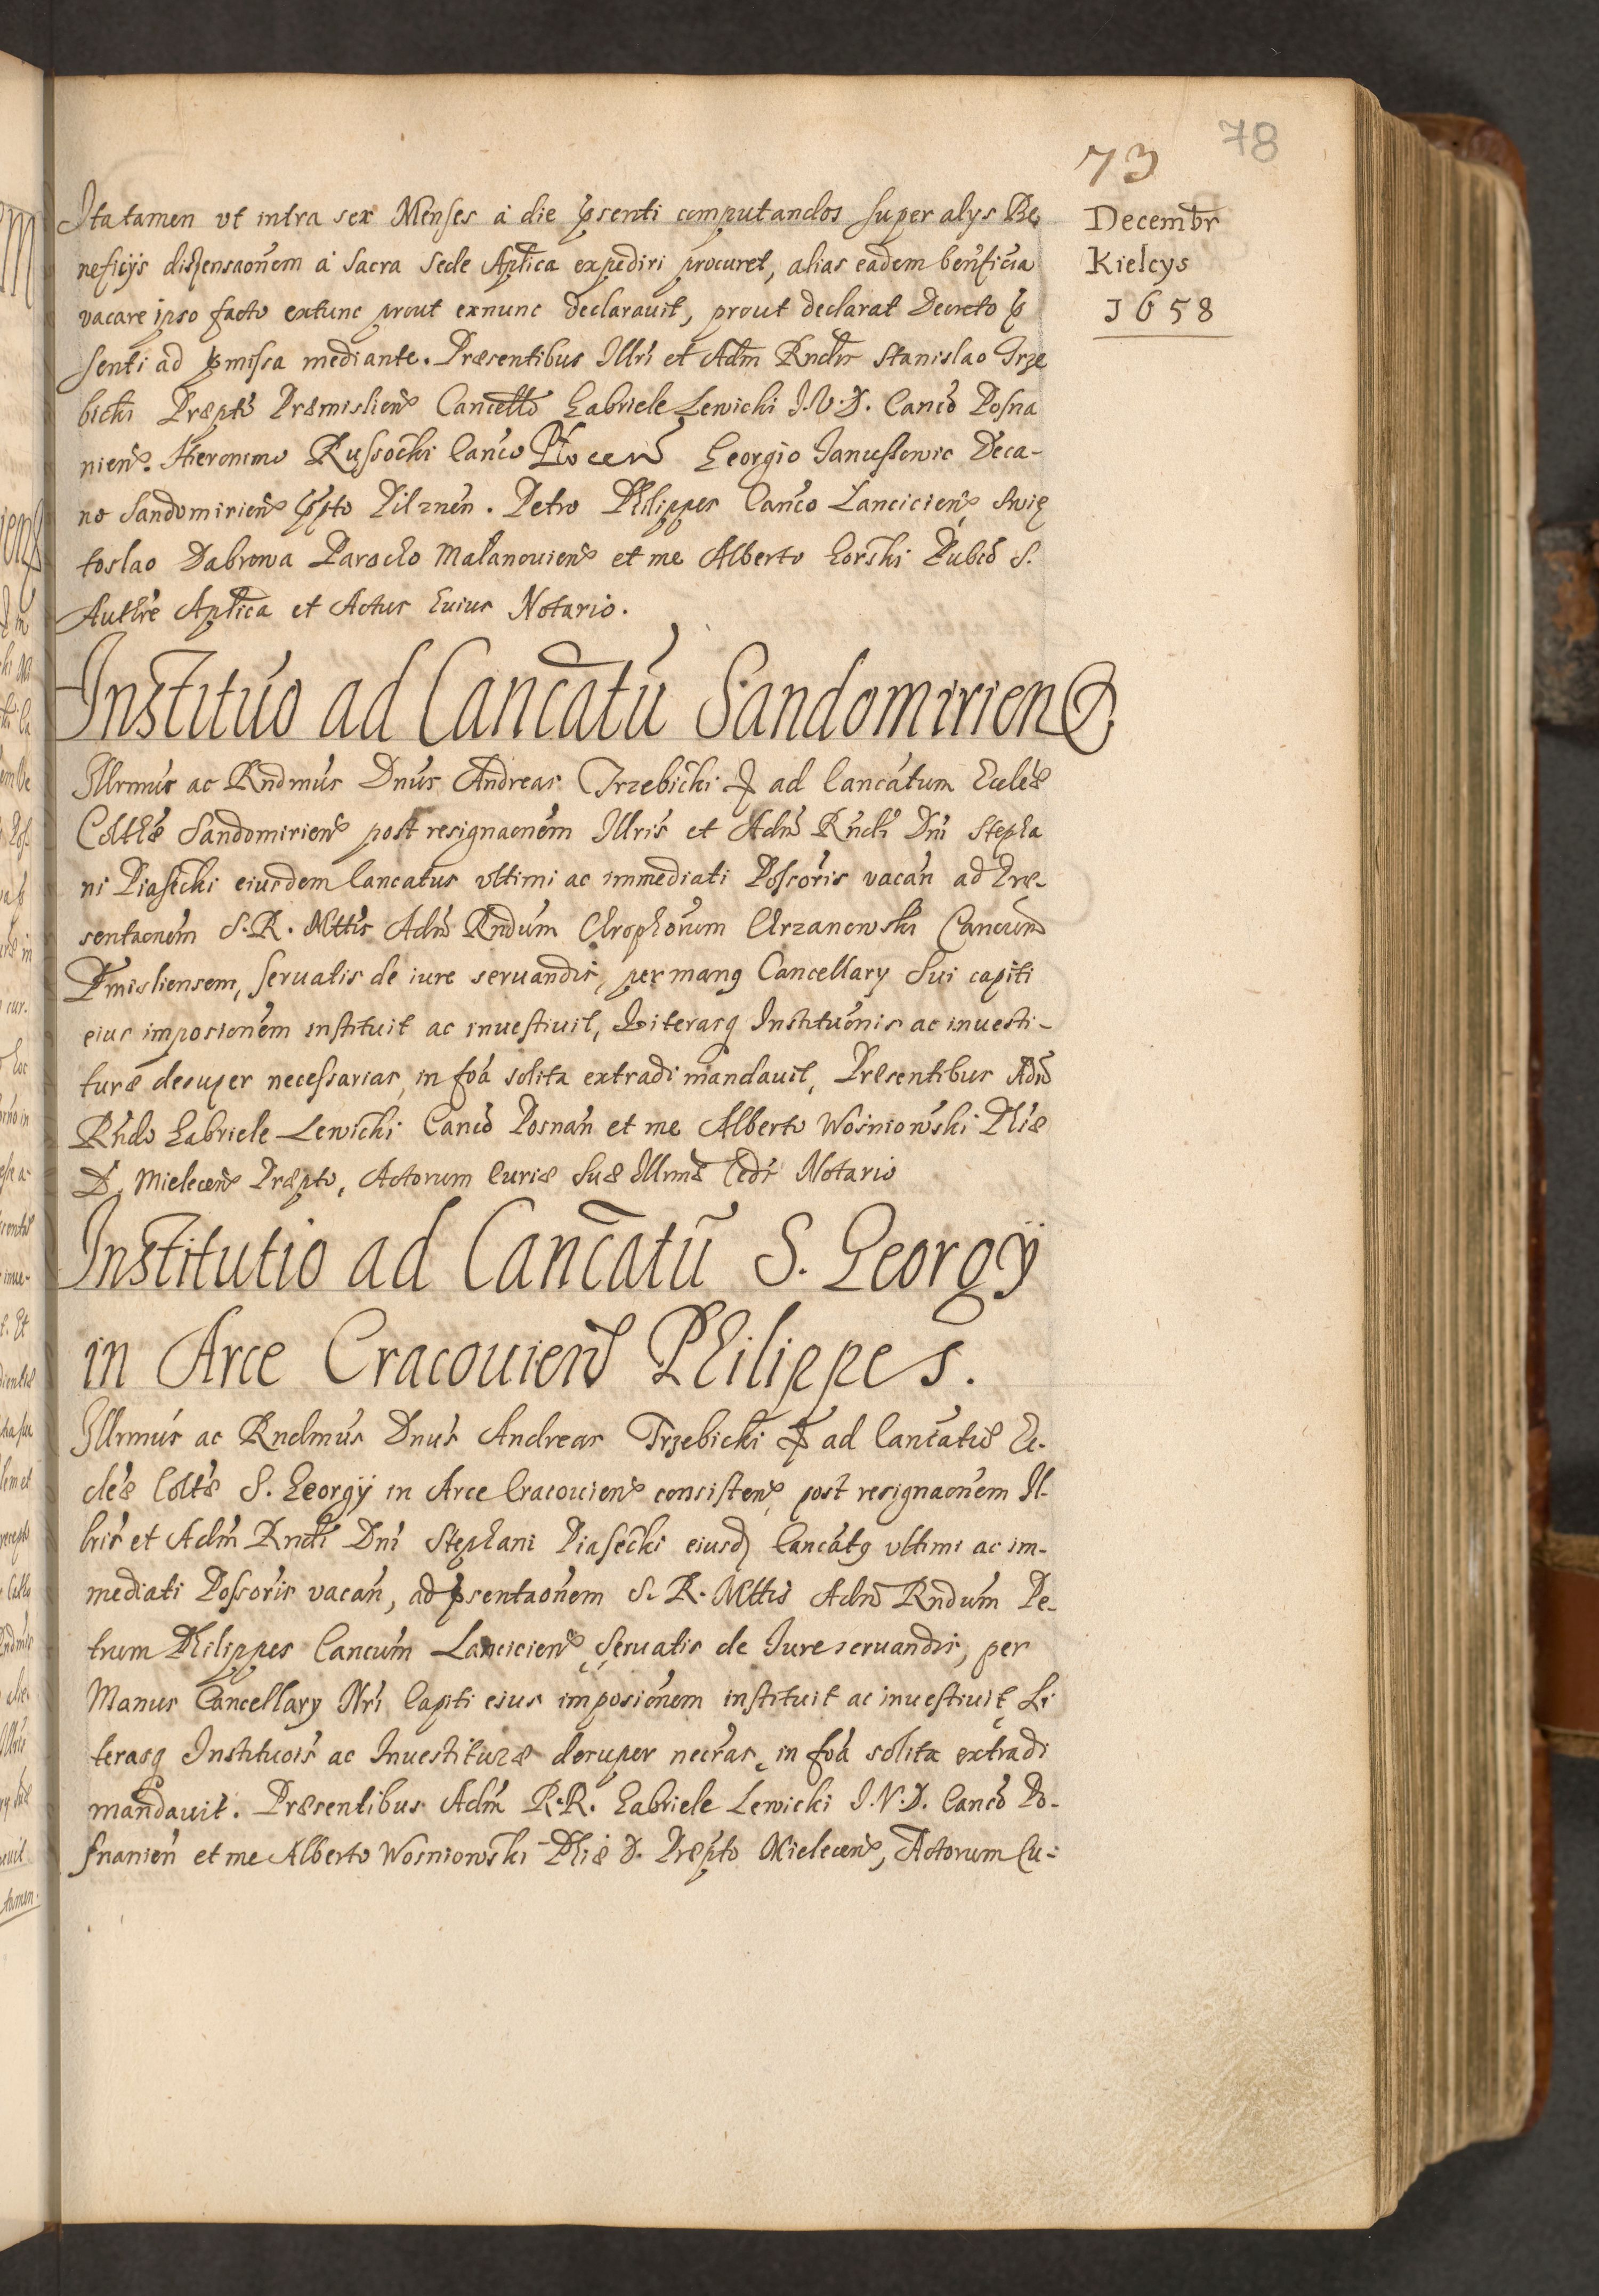 78
73
Decembr
Kielcys
1658
Ita tamen vt intra sex Menses à die psenti computandos super alys Be
neficijs dispensaonem à Sacra Sede Aplica expediri procuret, alias eadem beneficia
vacare ipso facto extunc prout exnunc declarauit, prout declarat Decreto p
senti ad pmissa mediante. Præsentibus Illri et Adm Rndis Stanislao Trze
bicki Præpto Præmislien Cancello Gabriele Lewicki I.V.D. Canco Posna
nien. Hieronimo Russocki Canco Plocen Georgio Janussowic Deca-
no Sandomirien Ppto Pilznen. Petro Philippes Canco Lancicien, Swię
toslao Dabrowa Parocho Malanouien et me Alberto Gorski Publo S.
Authre Aplica et Actus huius Notario.
Institúo ad Cancatu Sandomirien
Illrmus ac Rndmus Dnus Andreas Trzebicki & ad Cancatum Eccleæ
Colltæ Sandomirien post resignaonem Illris et Adm Rndi Dni Stepha
ni Piasecki eiusdem Cancatus vltimi ac immediati Possoris vacan ad Præ-
sentaonem S.R. Mttis Adm Rndum Chrophorum Chrzanowski Cancum
Pmisliensem, seruatis de iure seruandis, per manq Cancellary Sui capiti
eius imposionem instituit ac inuestiuit, Literasq Instituonis ac inuesti-
turæ desuper necessarias, in foa solita extradi mandauit, Præsentibus Adm
Rndo Gabriele Lewicki Canco Posnan et me Alberto Wosniowski Phiæ
D. Mielecen Præpto, Actorum Curiæ Suæ Illrmæ Cedi Notario
Institutio ad Cancatu S. Georgÿ
in Arce Cracouien Philippes.
Illrmus ac Rndmus Dnus Andreas Trzebicki & ad Cancatu Ec-
cleæ Coltæ S. Georgÿ in Arce Cracouien consisten, post resignaonem Il-
lris et Adm Rndi Dni Stephani Piasecki eiusd Cancatq vltimi ac im-
mediati Possoris vacan, ad psentaonem S. R. Mttis Adm Rndum Pe-
trum Philippes Cancum Lancicien, Seruatis de Iure seruandis, per
Manus Cancellary Nri Capiti eius imposionem instituit ac inuestiuit, Li
terasq Instituois ac Inuestituræ desuper necras, in foa solita extradi
mandauit. Præsentibus Adm R.R. Gabriele Lewicki I.V.D. Canco Po-
snanien et me Alberto Wosniowski Phiæ D. Præpto Mielecen, Actorum Cu-